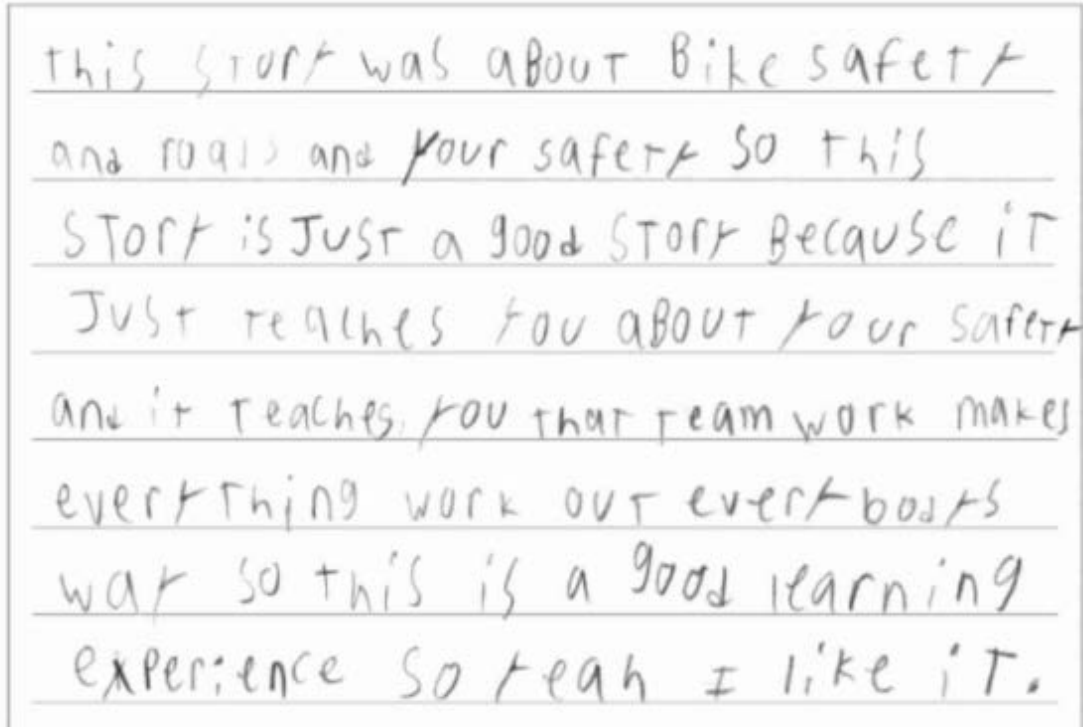 this story was aBout Bike safety
and roads and your safety so this
story is Just a good story Because it
Just teaches you aBout your safety
and it teaches you that team work makes
everything work out everybodys
way so this is a good learning
experience so yeah I like it.